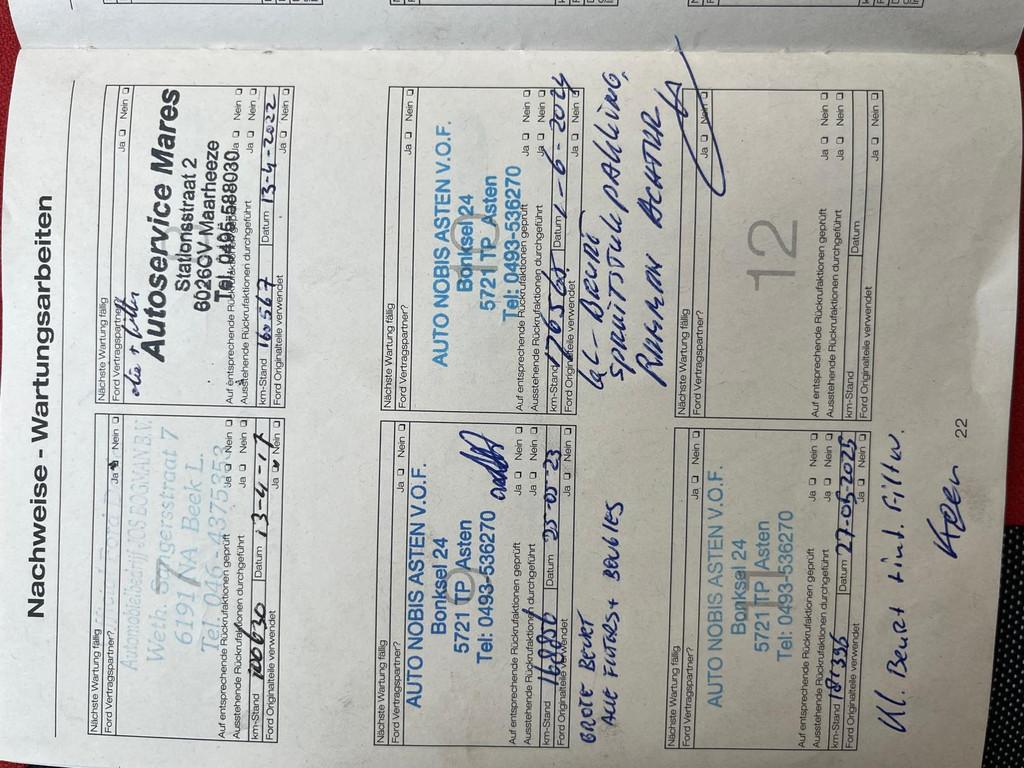 Nachweise - Wartungsarbeiten
Nächste Wartung fällig
Ford Vertragspartner? Ja Nein
Automobielbedrijf JOS BOGMAN B.V.
Weth. Sangersstraat 7
6191 NA Beek L.
Tel. 046-4375353
Auf entsprechende Rückrufaktionen geprüft Ja Nein
Ausstehende Rückrufaktionen durchgeführt Ja Nein
km-Stand 100630 Datum 13-4-17
Ford Originalteile verwendet Ja Nein
Nächste Wartung fällig
Ford Vertragspartner? Ja Nein
olie + filter
Autoservice Mares
Stationsstraat 2
6026CV Maarheeze
Tel. 0495-588030
Auf entsprechende Rückrufaktionen geprüft Ja Nein
Ausstehende Rückrufaktionen durchgeführt Ja Nein
km-Stand 160567 Datum 13-4-2022
Ford Originalteile verwendet Ja Nein
Nächste Wartung fällig
Ford Vertragspartner? Ja Nein
AUTO NOBIS ASTEN V.O.F.
Bonksel 24
5721 TP Asten
Tel: 0493-536270
9
Auf entsprechende Rückrufaktionen geprüft Ja Nein
Ausstehende Rückrufaktionen durchgeführt Ja Nein
km-Stand 168850 Datum 25-05-23
Ford Originalteile verwendet Ja Nein
GROTE BEURT
ALLE FILTERS + BOUGIES
Nächste Wartung fällig
Ford Vertragspartner? Ja Nein
AUTO NOBIS ASTEN V.O.F.
Bonksel 24
5721 TP Asten
Tel: 0493-536270
10
Auf entsprechende Rückrufaktionen geprüft Ja Nein
Ausstehende Rückrufaktionen durchgeführt Ja Nein
km-Stand 176565 Datum -6-2024
Ford Originalteile verwendet Ja Nein
BEURT
REMMEN ACHTER
Nächste Wartung fällig
Ford Vertragspartner? Ja Nein
AUTO NOBIS ASTEN V.O.F.
Bonksel 24
5721 TP Asten
Tel: 0493-536270
11
Auf entsprechende Rückrufaktionen geprüft Ja Nein
Ausstehende Rückrufaktionen durchgeführt Ja Nein
km-Stand 181396 Datum 27-05-2025
Ford Originalteile verwendet Ja Nein
Kl. Beurt + ind. Filter.
Nächste Wartung fällig
Ford Vertragspartner? Ja Nein
12
Auf entsprechende Rückrufaktionen geprüft Ja Nein
Ausstehende Rückrufaktionen durchgeführt Ja Nein
km-Stand Datum
Ford Originalteile verwendet Ja Nein
22